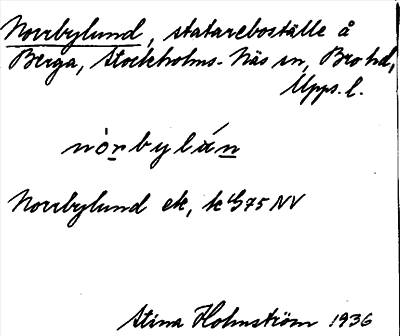 Norrbylund, statarebostället å
Berga, Stockholms-Näs sn, Bro hd,
Upps. l.
nòrbylán
Norrbylund ek,
Stina Holmström 1936